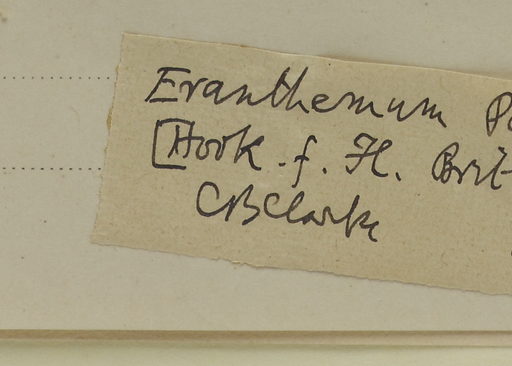 Eranthemum P
[Hook. f. Fl. Brit
CBClarke